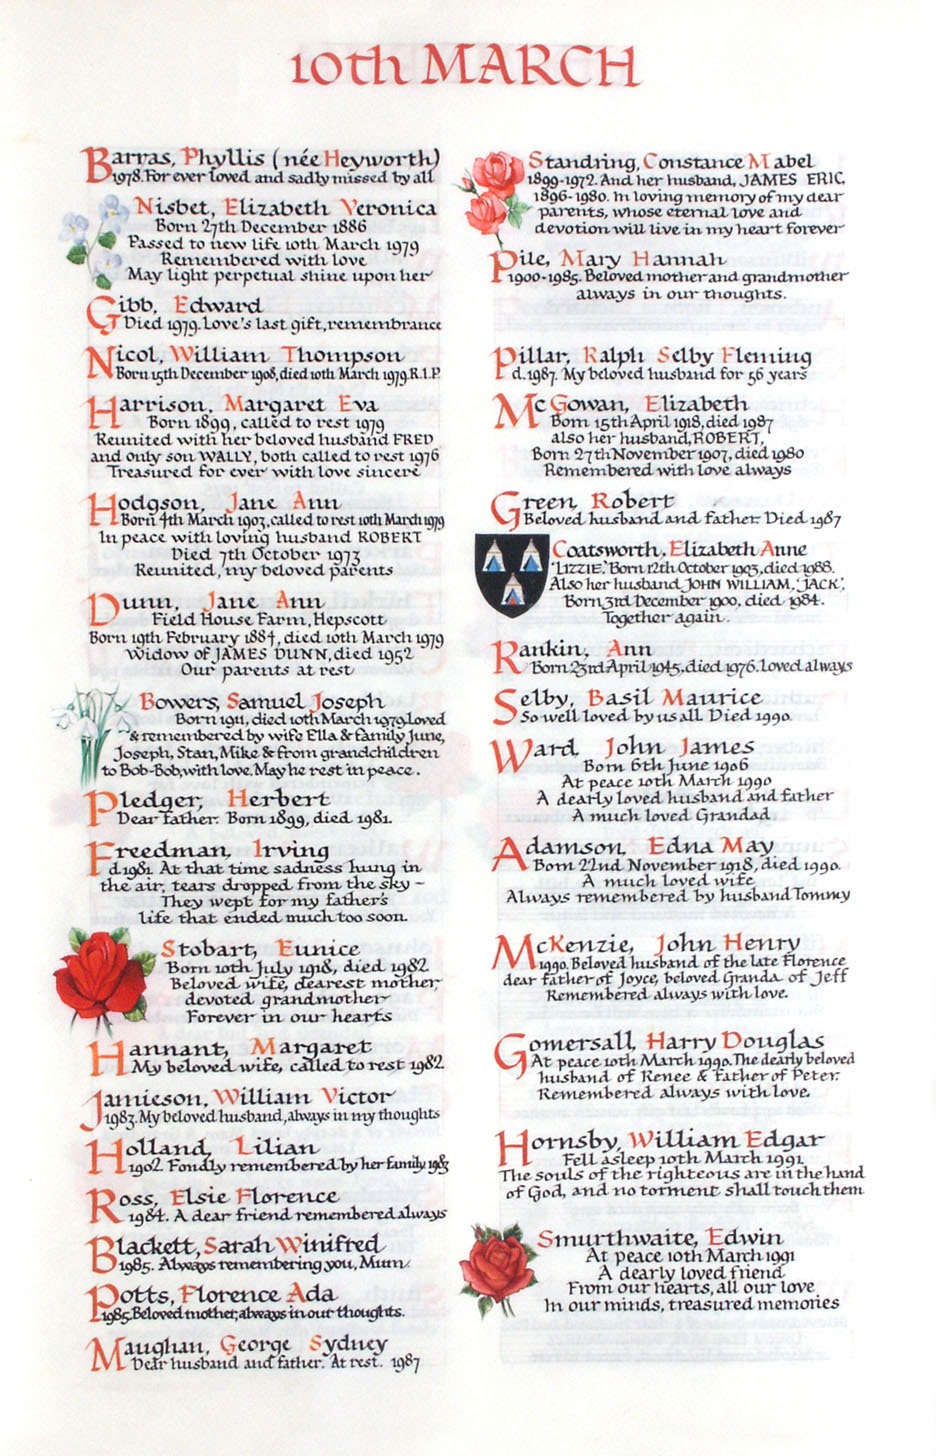 10th MARCH
Barras, Phyllis (née Heyworth)
1978. For ever loved and sadly missed by all
Nisbet, Elizabeth Veronica
Born 27th December 1886
Passed to new life 10th March 1979
Remembered with love
May light perpetual shine upon her
Gibb, Edward
Died 1979. Love's last gift, remembrance
Nicol, William Thompson
Born 15th December 1908, died 10th March 1979. R.I.P.
Harrison, Margaret Eva
Born 1899, called to rest 1979
Reunited with her beloved husband FRED
and only son WALLY, both called to rest 1976
Treasured for ever with love sincere
Hodgson, Jane Ann
Born 4th March 1903, called to rest 10th March 1979
In peace with loving husband ROBERT
Died 7th October 1973
Reunited, my beloved parents
Dunn, Jane Ann
Field House Farm, Hepscott
Born 19th February 1884, died 10th March 1979
Widow of JAMES DUNN, died 1952
Our parents at rest
Bowers, Samuel Joseph
Born 1911, died 10th March 1979. Loved
& remembered by wife Ella & family June,
Joseph, Stan, Mike & from grandchildren
to Bob-Bob, with love. May he rest in peace.
Pledger, Herbert
Dear father. Born 1899, died 1981.
Freedman, Irving
d.1981. At that time sadness hung in
the air, tears dropped from the sky ~
They wept for my father's
life that ended much too soon.
Stobart, Eunice
Born 10th July 1918, died 1982
Beloved wife, dearest mother,
devoted grandmother
Forever in our hearts
Hannant, Margaret
My beloved wife, called to rest 1982
Jamieson, William Victor
1983. My beloved husband, always in my thoughts
Holland, Lilian
1902. Fondly remembered by her family 1983
Ross, Elsie Florence
1984. A dear friend remembered always
Blackett, Sarah Winifred
1985. Always remembering you, Mum
Potts, Florence Ada
1985. Beloved mother, always in our thoughts.
Maughan, George Sydney
Dear husband and father. At rest. 1987
Standring, Constance Mabel
1899-1972. And her husband, JAMES ERIC,
1896-1980. In loving memory of my dear
parents, whose eternal love and
devotion will live in my heart forever
Pile, Mary Hannah
1900-1985. Beloved mother and grandmother
always in our thoughts.
Pillar, Ralph Selby Fleming
d.1987. My beloved husband for 56 years
McGowan, Elizabeth
Born 15th April 1918, died 1987
also her husband, ROBERT,
Born 27th November 1907, died 1980
Remembered with love always
Green, Robert
Beloved husband and father. Died 1987
Coatsworth, Elizabeth Anne
'LIZZIE'. Born 12th October 1903, died 1988.
Also her husband JOHN WILLIAM, 'JACK',
Born 3rd December 1900, died 1984.
Together again.
Rankin, Ann
Born 23rd April 1945, died 1976. Loved always
Selby, Basil Maurice
So well loved by us all Died 1990
Ward, John James
Born 6th June 1906
At peace 10th March 1990
A dearly loved husband and father
A much loved Grandad
Adamson, Edna May
Born 22nd November 1918, died 1990.
A much loved wife
Always remembered by husband Tommy
McKenzie, John Henry
1990. Beloved husband of the late Florence
dear father of Joyce, beloved Granda of Jeff
Remembered always with love.
Gomersall, Harry Douglas
At peace 10th March 1990. The dearly beloved
husband of Renee & father of Peter.
Remembered always with love.
Hornsby, William Edgar
Fell asleep 10th March 1991
The souls of the righteous are in the hand
of God, and no torment shall touch them
Smurthwaite, Edwin
At peace 10th March 1991
A dearly loved friend
From our hearts, all our love
In our minds, treasured memories